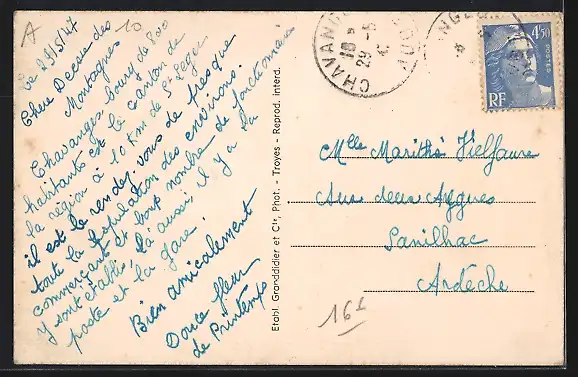 A
10
Le 29/5/47
Chère Déesse des
Montagnes
Chavanges bourg de 800
habitants est le canton de
la région à 10 Km de St Léger
il est le rendez-vous de presque
toute la population des environs.
commerçant et bon nombre de fonctionnaires
Y sont établis, là aussi, il y a la
poste et la gare.
Bien amicalement
Douce fleur
de Printemps
Etabl. Granddidier et Cie, Phot. - Troyes - Reprod. interd.
CHAVANGES
18 H
29 -5
AUBE
4F50
POSTES
RF
Mlle Marithé Vielfaure
Aux deux Aygues
Sanilhac
Ardèche
16F